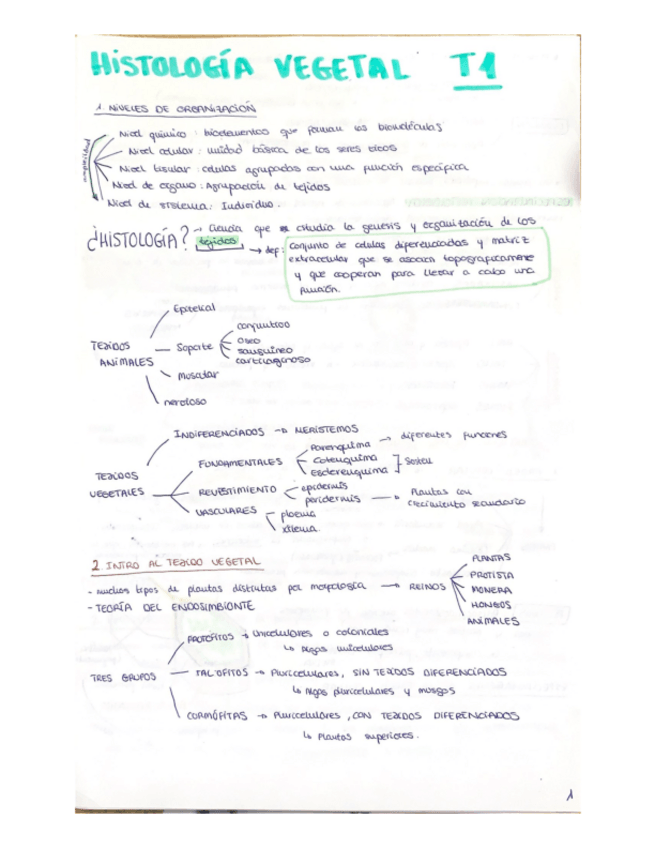 HISTOLOGÍA VEGETAL T1
1. NIVELES DE ORGANIZACIÓN
Nivel químico: bioelementos que forman las biomoléculas
Nivel celular: unidad básica de los seres vivos
Nivel tisular: células agrupadas con una función específica
Nivel de órgano: Agrupación de tejidos
Nivel de sistema: Individuo.
complejidad
¿HISTOLOGÍA? → Ciencia que estudia la genesis y organización de los
tejidos → def: conjunto de celulas diferenciadas y matriz
extracelular que se asocian topográficamente
y que cooperan para llevar a cabo una
función.
TEJIDOS ANIMALES
Epitelial
Soporte
conjuntivo
oseo
sanguineo
cartilaginoso
muscular
nervioso
TEJIDOS VEGETALES
INDIFERENCIADOS → MERISTEMOS
FUNDAMENTALES
Parenquima → diferentes funciones
Colenquima
Esclerenquima
] Sostén
REVESTIMIENTO
epidermis
peridermis → Plantas con
crecimiento secundario
VASCULARES
floema
xilema
2 INTRO AL TEJIDO VEGETAL
- muchos tipos de plantas distintas por morfología → REINOS
PLANTAS
PROTISTA
MONERA
HONGOS
ANIMALES
- TEORÍA DEL ENDOSIMBIONTE
TRES GRUPOS
PROTÓFITOS → Unicelulares o coloniales
↳ Algas unicelulares
TALOFITOS → Pluricelulares, SIN TEJIDOS DIFERENCIADOS
↳ Algas pluricelulares y musgos
CORMÓFITAS → Pluricelulares, CON TEJIDOS DIFERENCIADOS
↳ Plantas superiores.
1